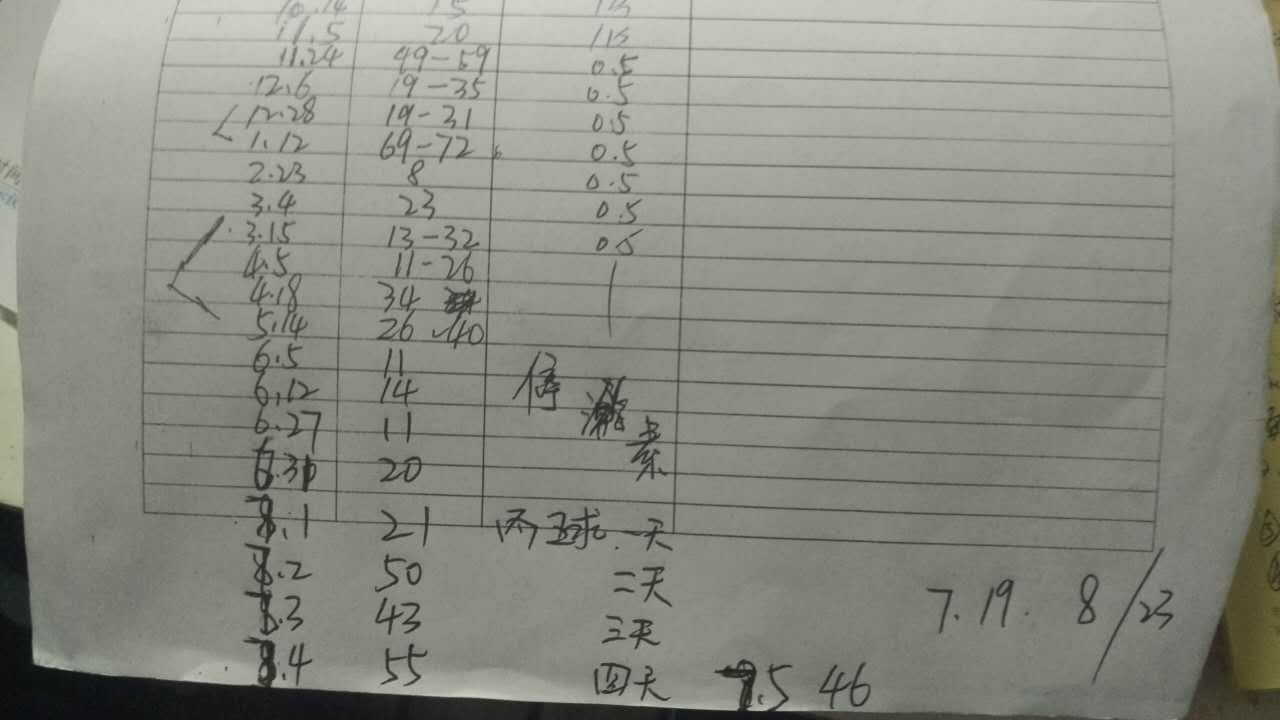 10.14 15
11.5 20
11.24 49-59 0.5
12.6 19-35 0.5
12.28 19-31 0.5
1.12 69-72 0.5
2.23 8 0.5
3.4 23 0.5
3.15 13-32 0.5
4.5 11-26
4.18 34
5.14 26 40
6.5 11
6.12 14 停
6.27 11 激素
6.30 20
7.1 21 丙球 一天
7.2 50 二天
7.3 43 三天
7.4 55 四天 7.5 46
7.19. 8/23